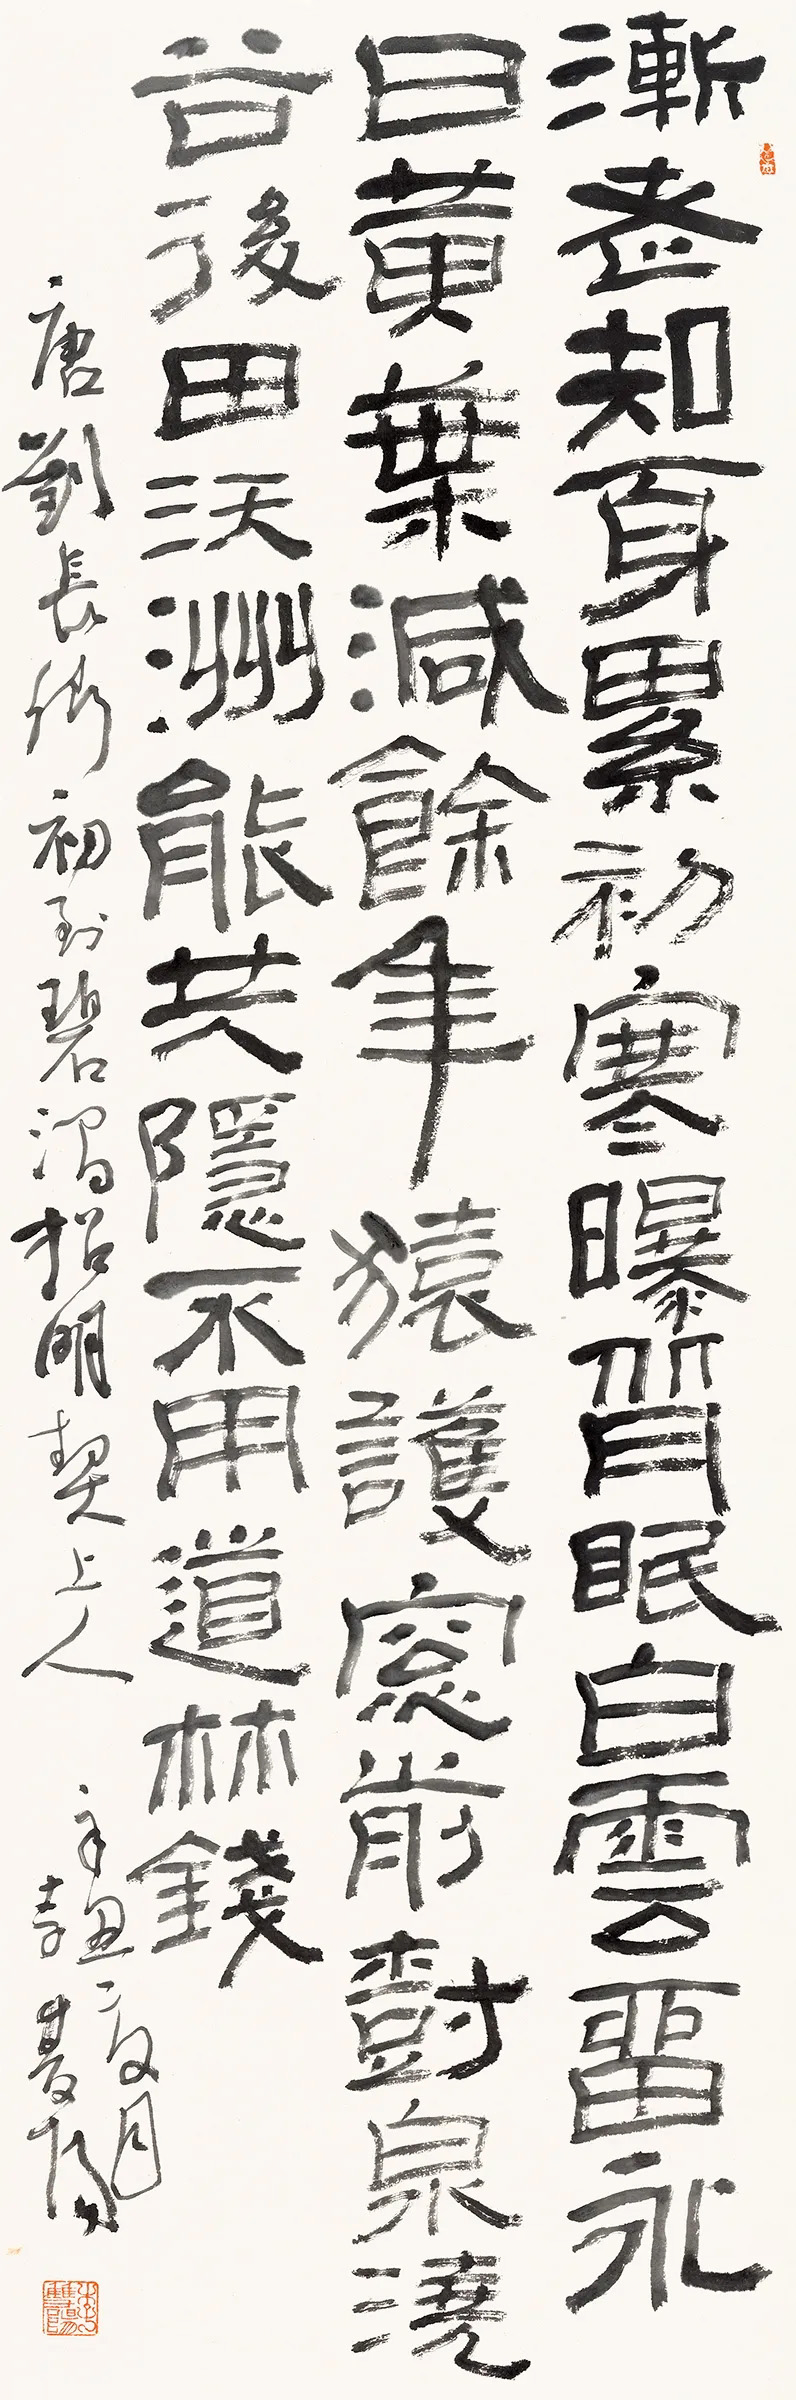 漸老知身累初寒曝背眠白雲畱永
日黃葉減餘年猿護窓前樹泉澆
谷後田沃洲能共隱不用道林錢
唐劉長卿初到碧澗招明契上人
辛丑夏月
李雙陽